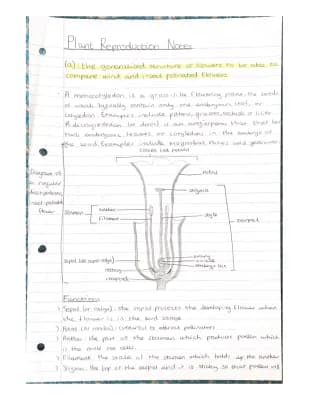 Plant Reproduction Notes
(a) the generalised structure of flowers to be able to
compare wind and insect pollinated flowers
A monocotyledon is a grass-like flowering plant, the seeds
of which typically contain only one embryonic leaf, or
cotyledon. Examples include palms, grasses, orchids or lilies.
A dicotyledon (or dicot) is an angiosperm that has
two embryonic leaves or cotyledon in the embryo of
the seed. Examples include magnolias, roses and geraniums.
Diagram of
a regular
dicotyledonous,
insect pollinated
flower
petal
stigma
stamen
anther
filament
style
carpel
sepal
ovary
ovule
embryo sac
Functions
Sepal (or calyx): the sepal protects the developing flower when
the flower is in the bud stage.
Petal: coloured to attract pollinators
Anther: the part of the stamen which produces pollen which
is the male sex cells.
Filament: the stalk of the stamen which holds up the anther
Stigma: the top of the carpel and it is sticky so that pollen will